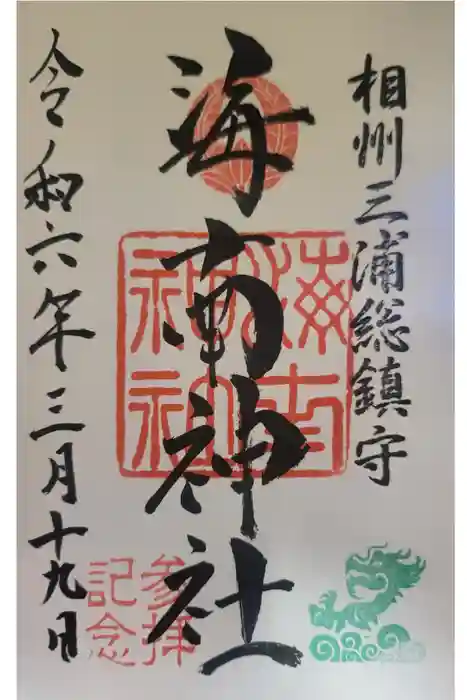 相州三浦総鎮守
海南神社
海南神社
参拝
記念
令和六年三月十九日